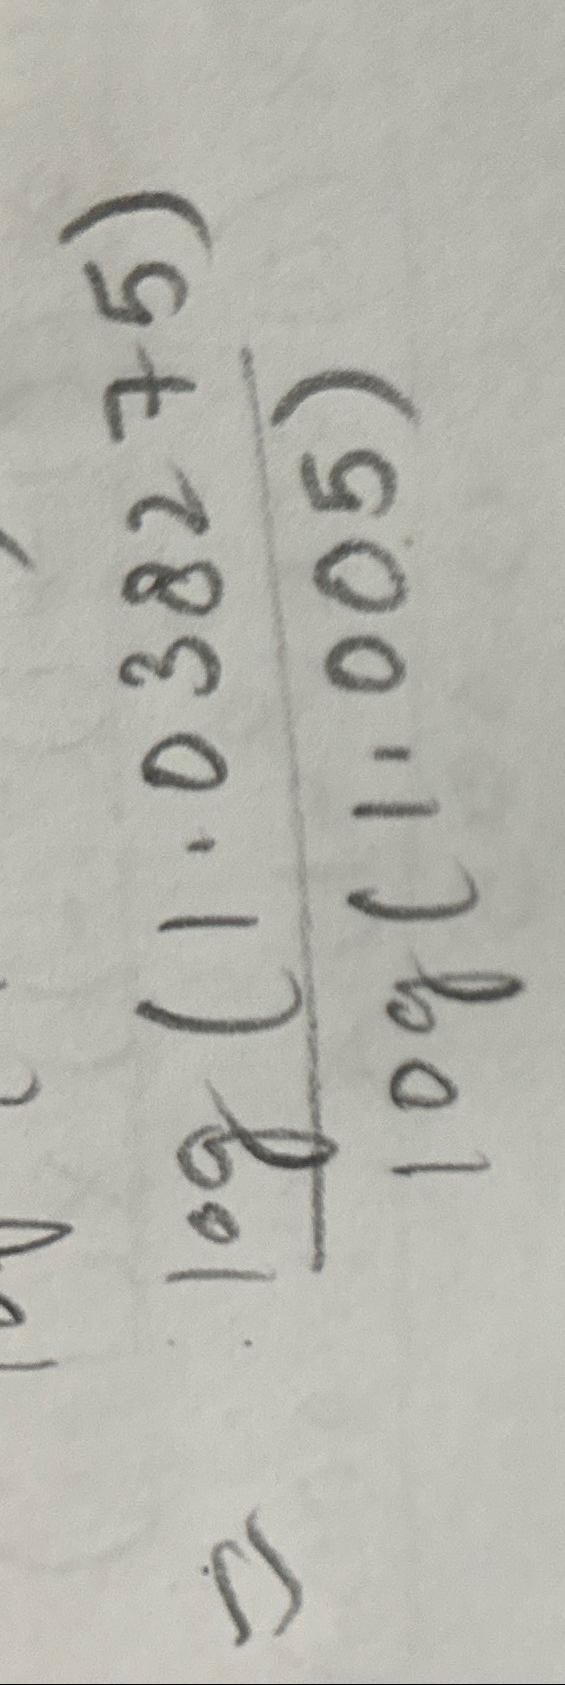 = log (1.038275)
log (1.005)